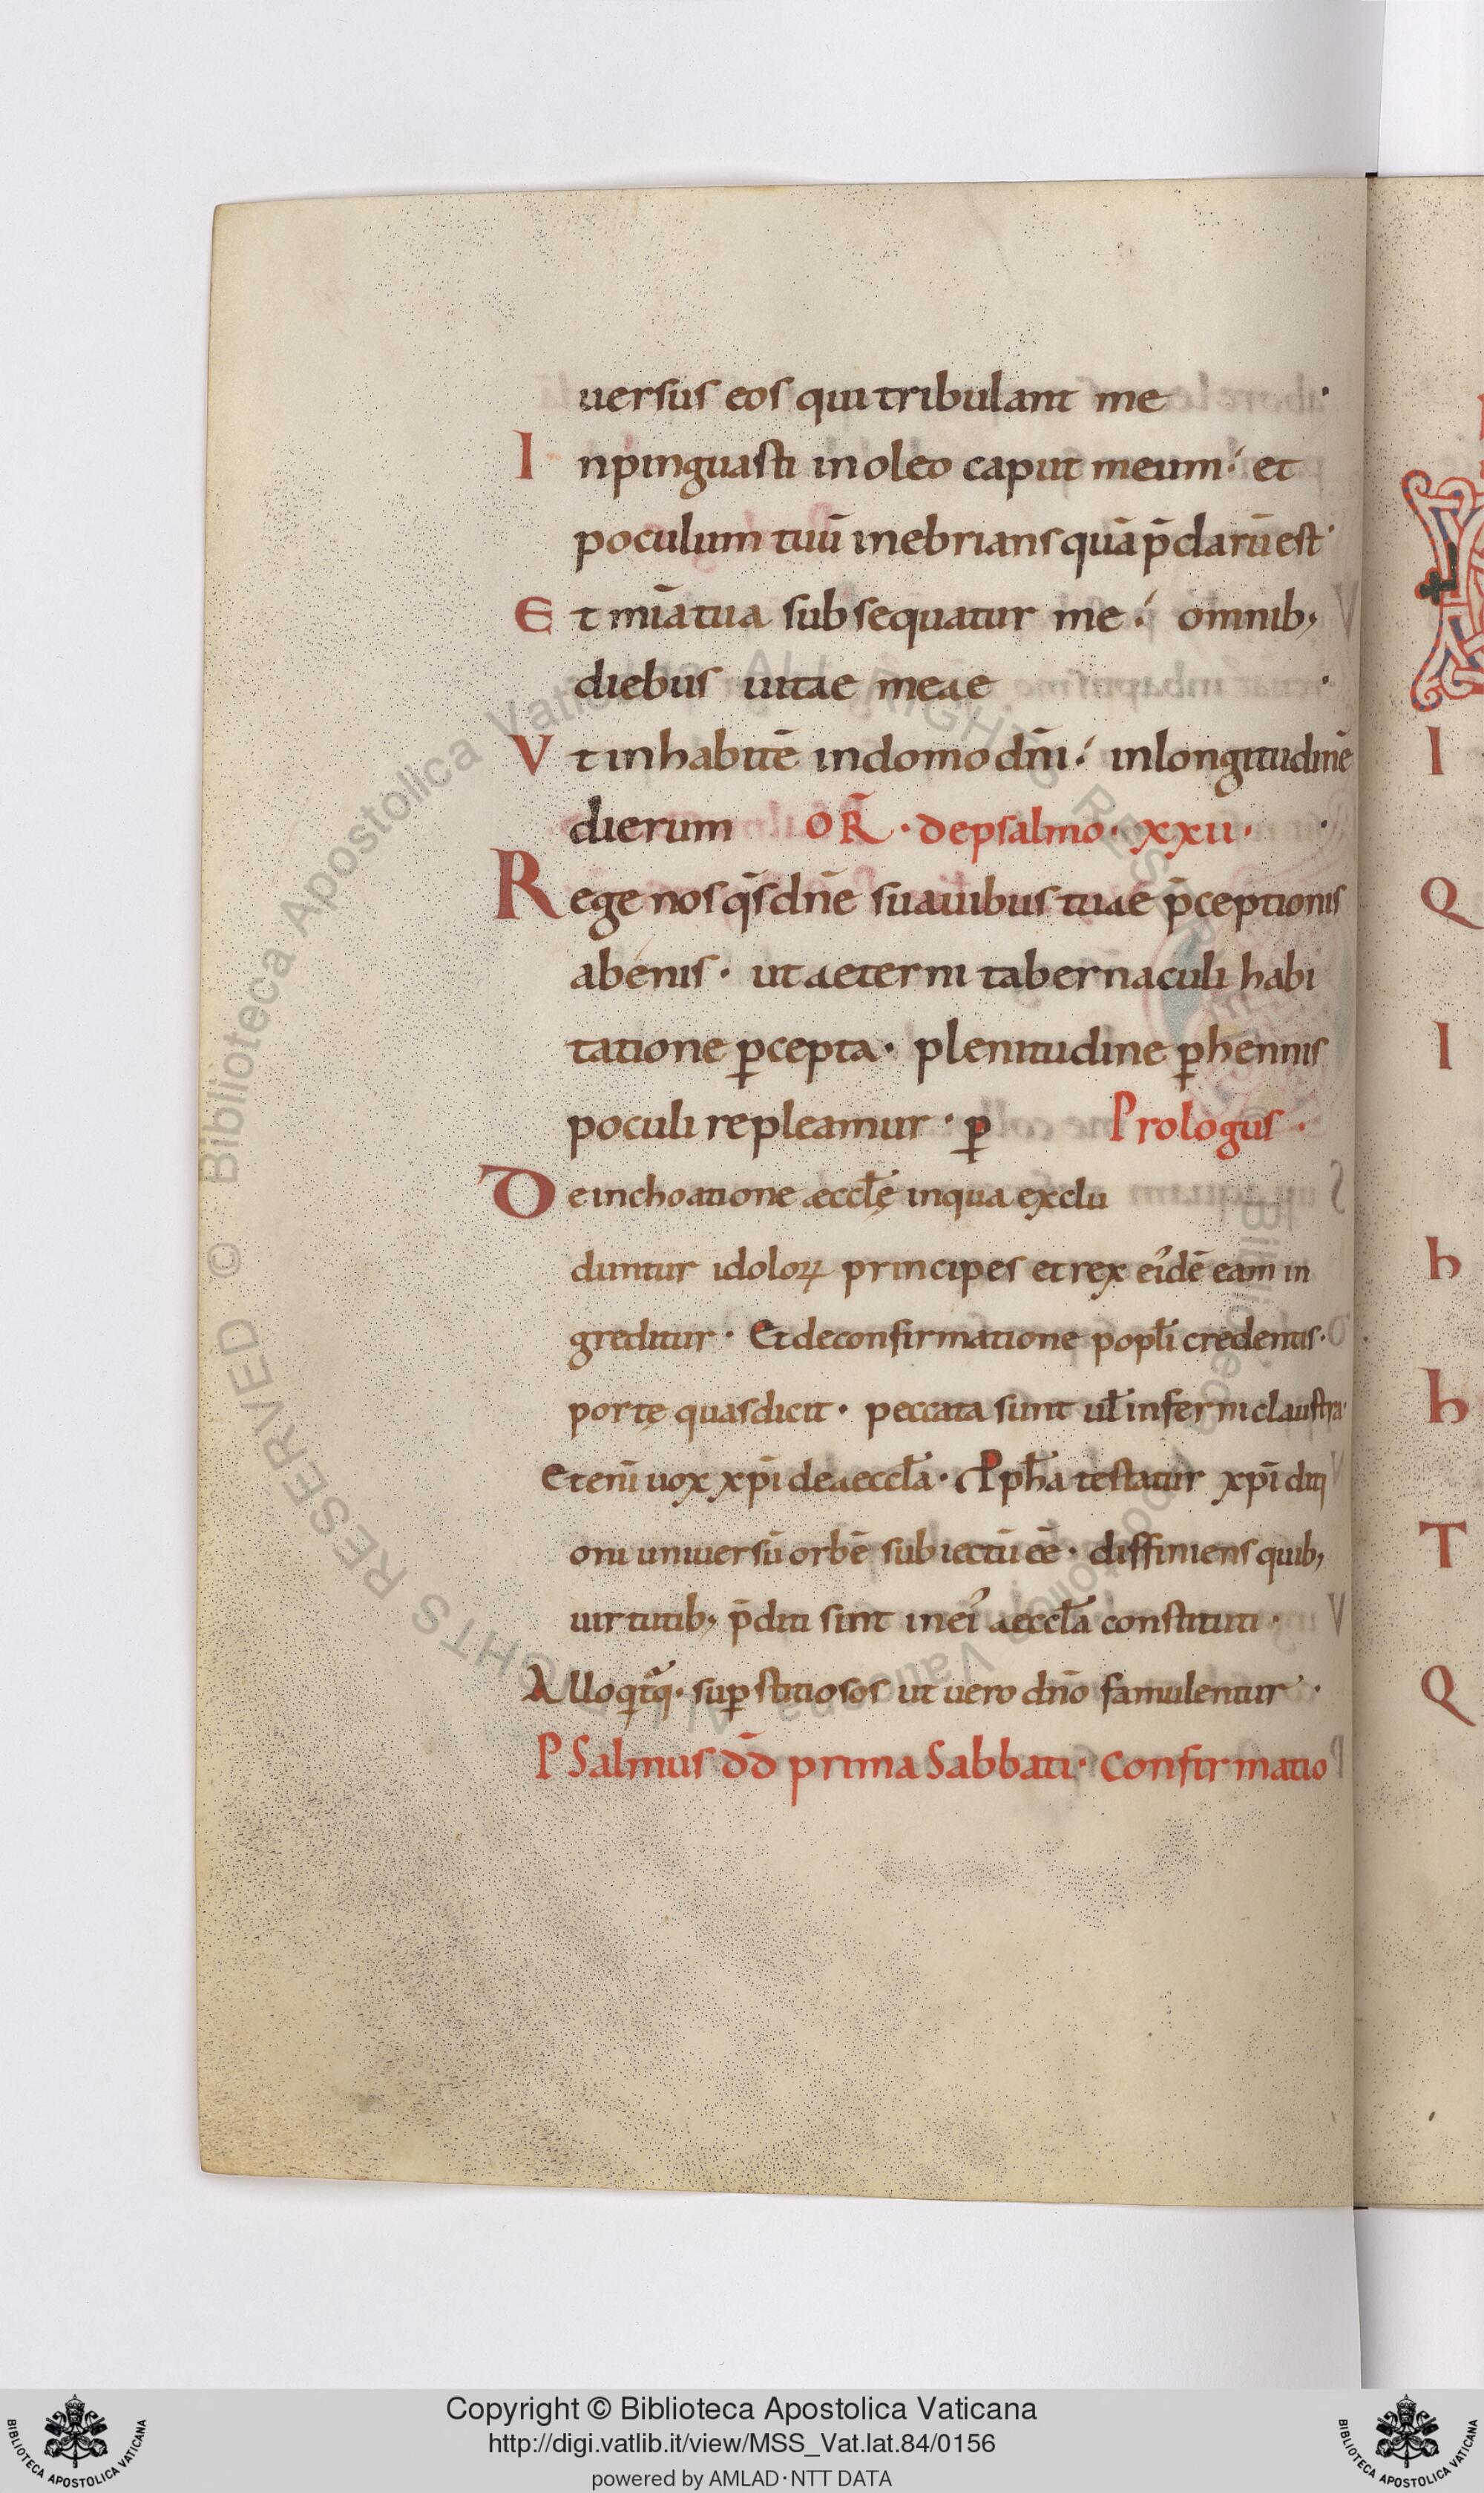 uersus eos qui tribulant me ·
Inpinguasti in oleo caput meum:́ et
poculum tuū inebrians quā p̄clarū est·
Et mīa tua subsequatur me:́ omnib;
diebus uitae meae ·
Vt inhabitē in domo dn̄i:́ in longitudinē
dierum OR̄ · de psalmo · xxii · ·
Rege nos qs̄ dn̄e suauibus tuae p̄ceptionis
abenis · ut aeterni tabernaculi habi
tatione ꝑcepta · plenitudine ꝑhennis
poculi repleamur · ꝑ Prologus ·
De inchoatione æccl̄ę in qua exclu
duntur idoloꝝ principes et rex ei᾿dē eam in
greditur · Et de confirmatione popl̄i credentis ·
portę quas dicit · peccata sunt ul̄ inferni claustra·
Et enī uox xp̄i de aeccl̄a · APph̄a testatur xp̄i diti
oni uniuersū orbē subiectū eē · diffiniens quib;
uirtutib; p̄diti sint in ei᾿ aeccl̄a constituti ·
Alloqt̄q · suꝑstitiosos ut uero dn̄o famulentur ·
PSalmus dd̄ prima Sabbati · Confirmatio
I
Q
I
h
h
T
Q
© Biblioteca Apostolica Vaticana ALL RIGHTS RESERVED
Copyright © Biblioteca Apostolica Vaticana
http://digi.vatlib.it/view/MSS_Vat.lat.84/0156
powered by AMLAD·NTT DATA
BIBLIOTECA APOSTOLICA VATICANA
BIBLIOTECA APOSTOLICA VATICANA